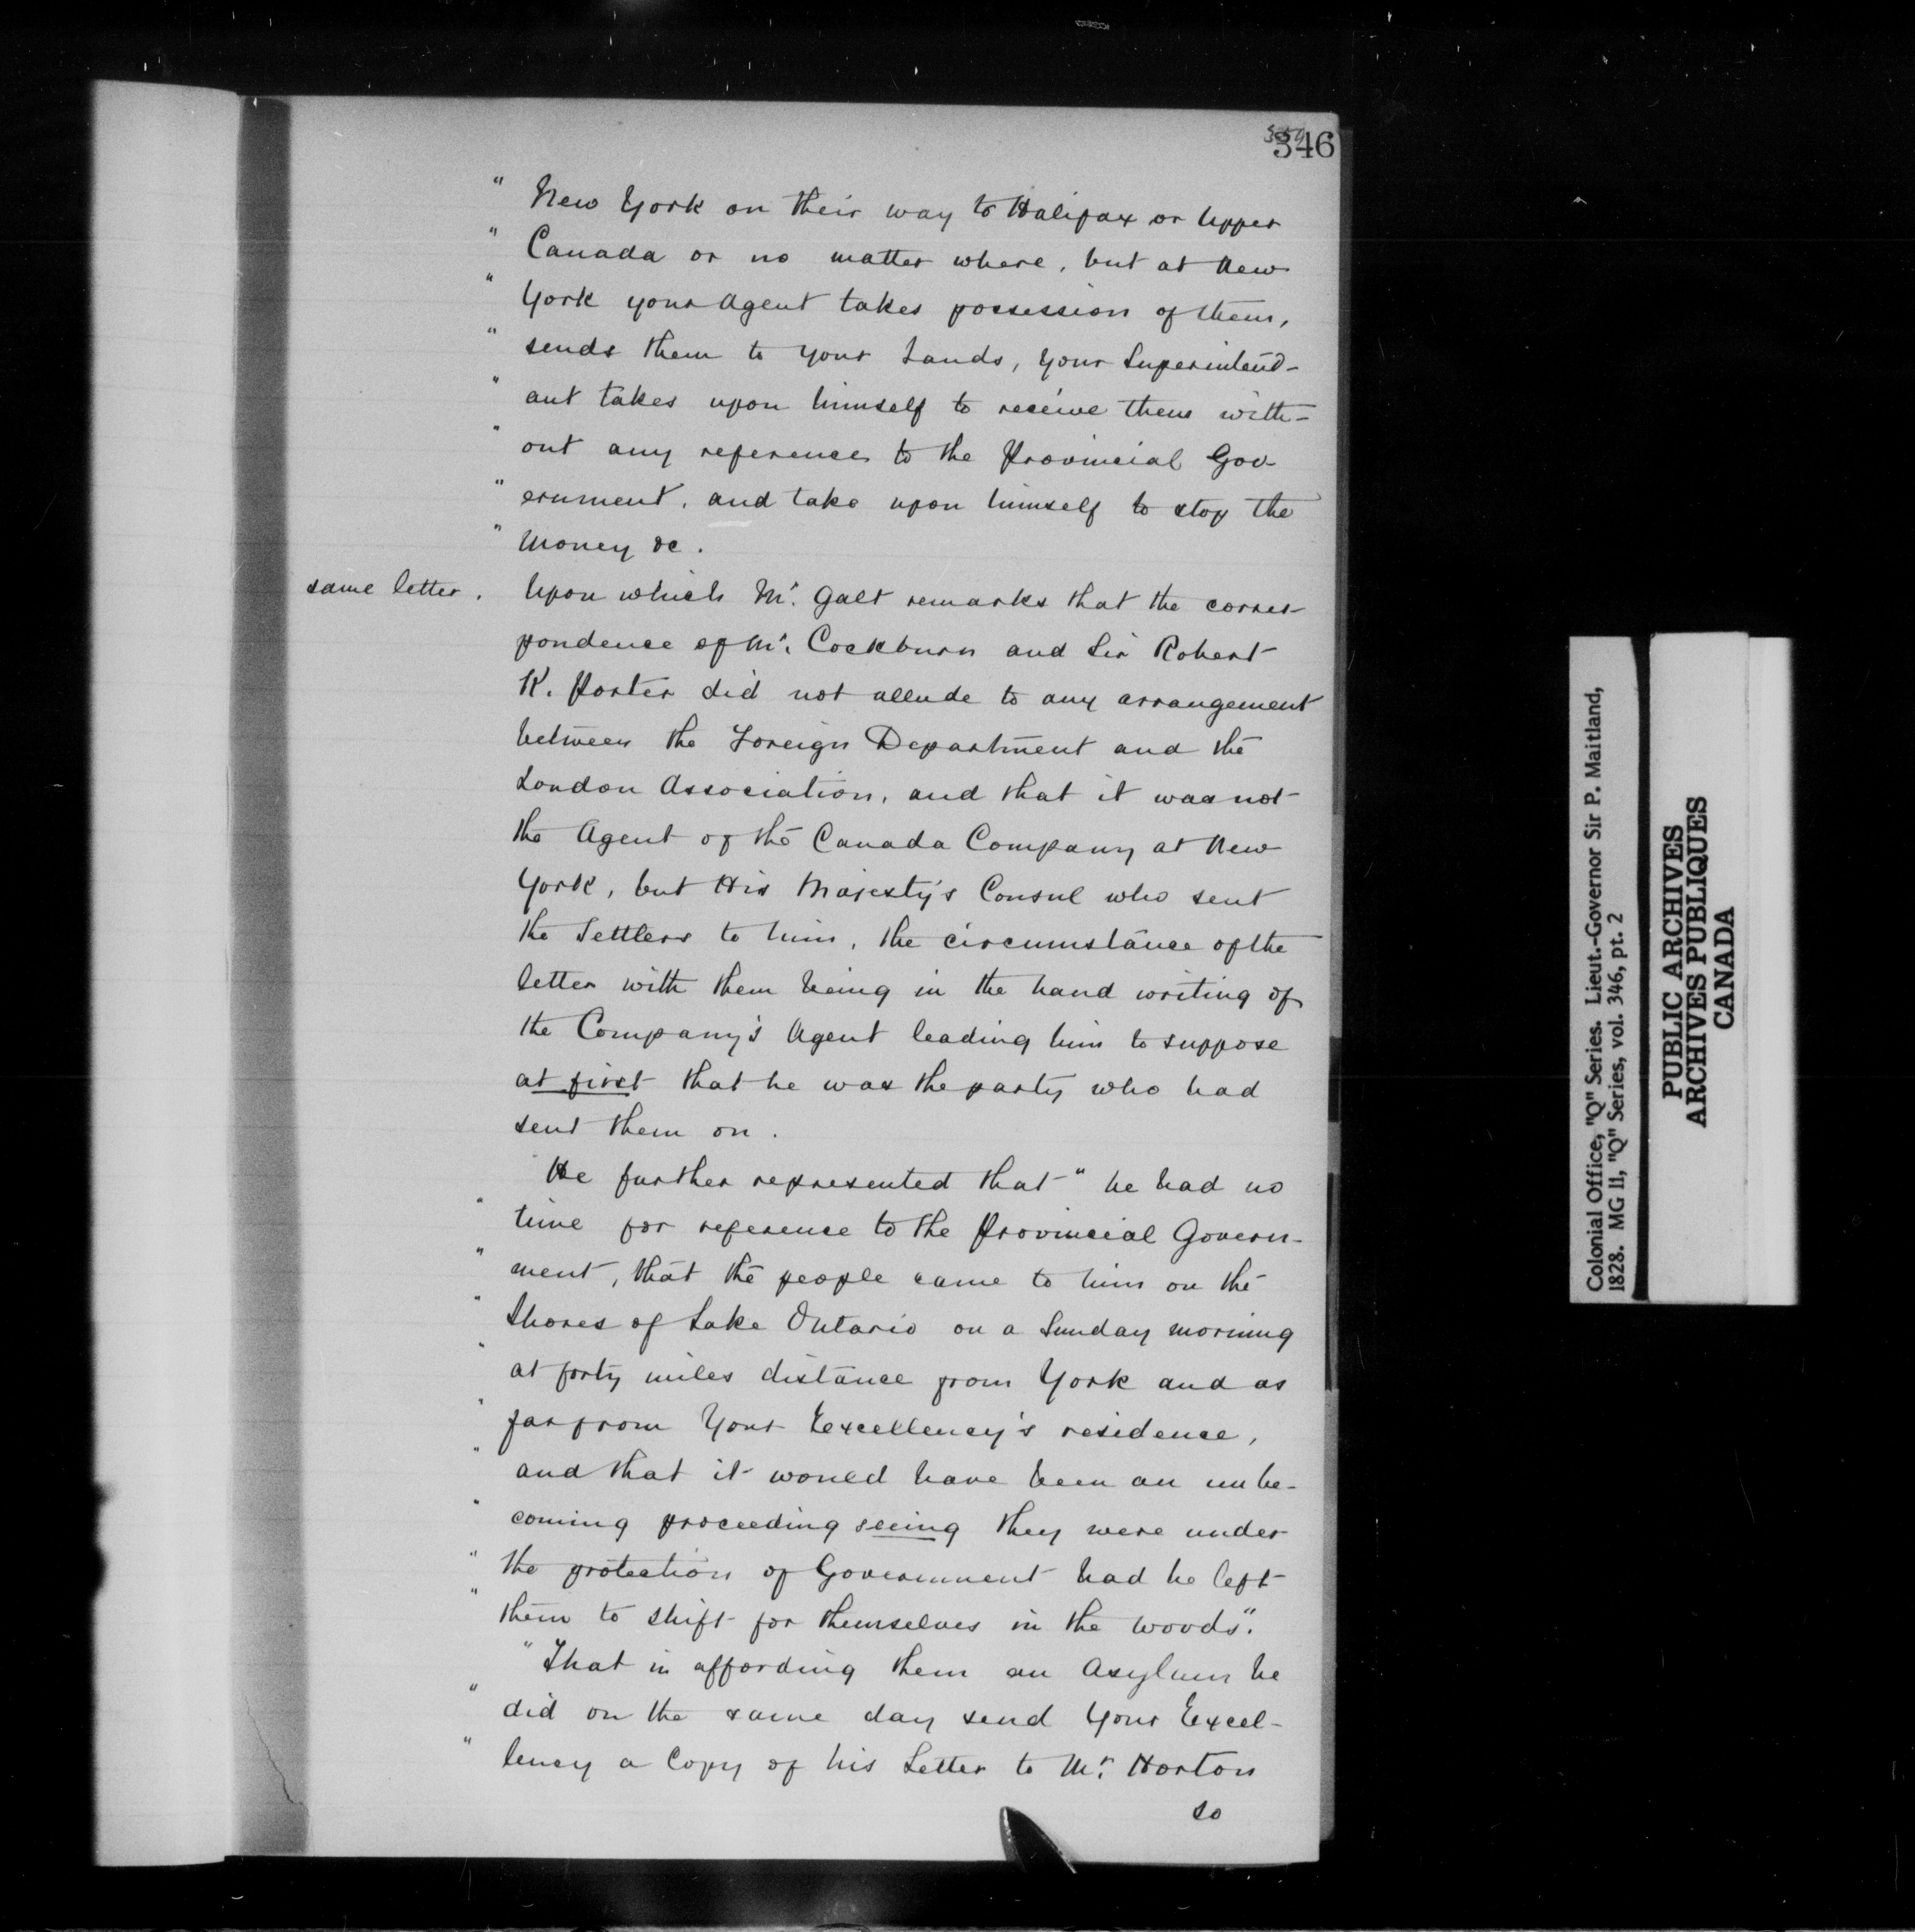 346
" New York on their way to Halifax or Upper
" Canada or no matter where, but at New
" York your Agent takes possession of them,
" sends them to your Lands, your Superintend-
" ant takes upon himself to receive them with-
" out any reference to the Provincial Gov-
" ernment, and take upon himself to stop the
" Money &c.
same letter. Upon which Mr. Galt remarks that the corres-
pondence of Mr. Cockburn and Sir Robert
K. Porter did not allude to any arrangement
between the Foreign Department and the
London Association, and that it was not
the Agent of the Canada Company at New
York, but His Majesty's Consul who sent
the Settlers to him, the circumstance of the
letter with them being in the hand writing of
the Company's Agent leading him to suppose
at first that he was the party who had
sent them on.
He further represented that "he had no
" time for reference to the Provincial Govern-
" ment, that the people came to him on the
" Shores of Lake Ontario on a Sunday morning
" at forty miles distance from York and as
" far from Your Excellency's residence,
" and that it would have been an unbe-
" coming proceeding seeing they were under
" the protection of Government had he left
" them to shift for themselves in the woods."
"That in affording them an Asylum he
" did on the same day send Your Excel-
" lency a Copy of his Letter to Mr. Horton
so
Colonial Office, "Q" Series. Lieut.-Governor Sir P. Maitland,
1828. MG 11, "Q" Series, vol. 346, pt. 2
PUBLIC ARCHIVES
ARCHIVES PUBLIQUES
CANADA